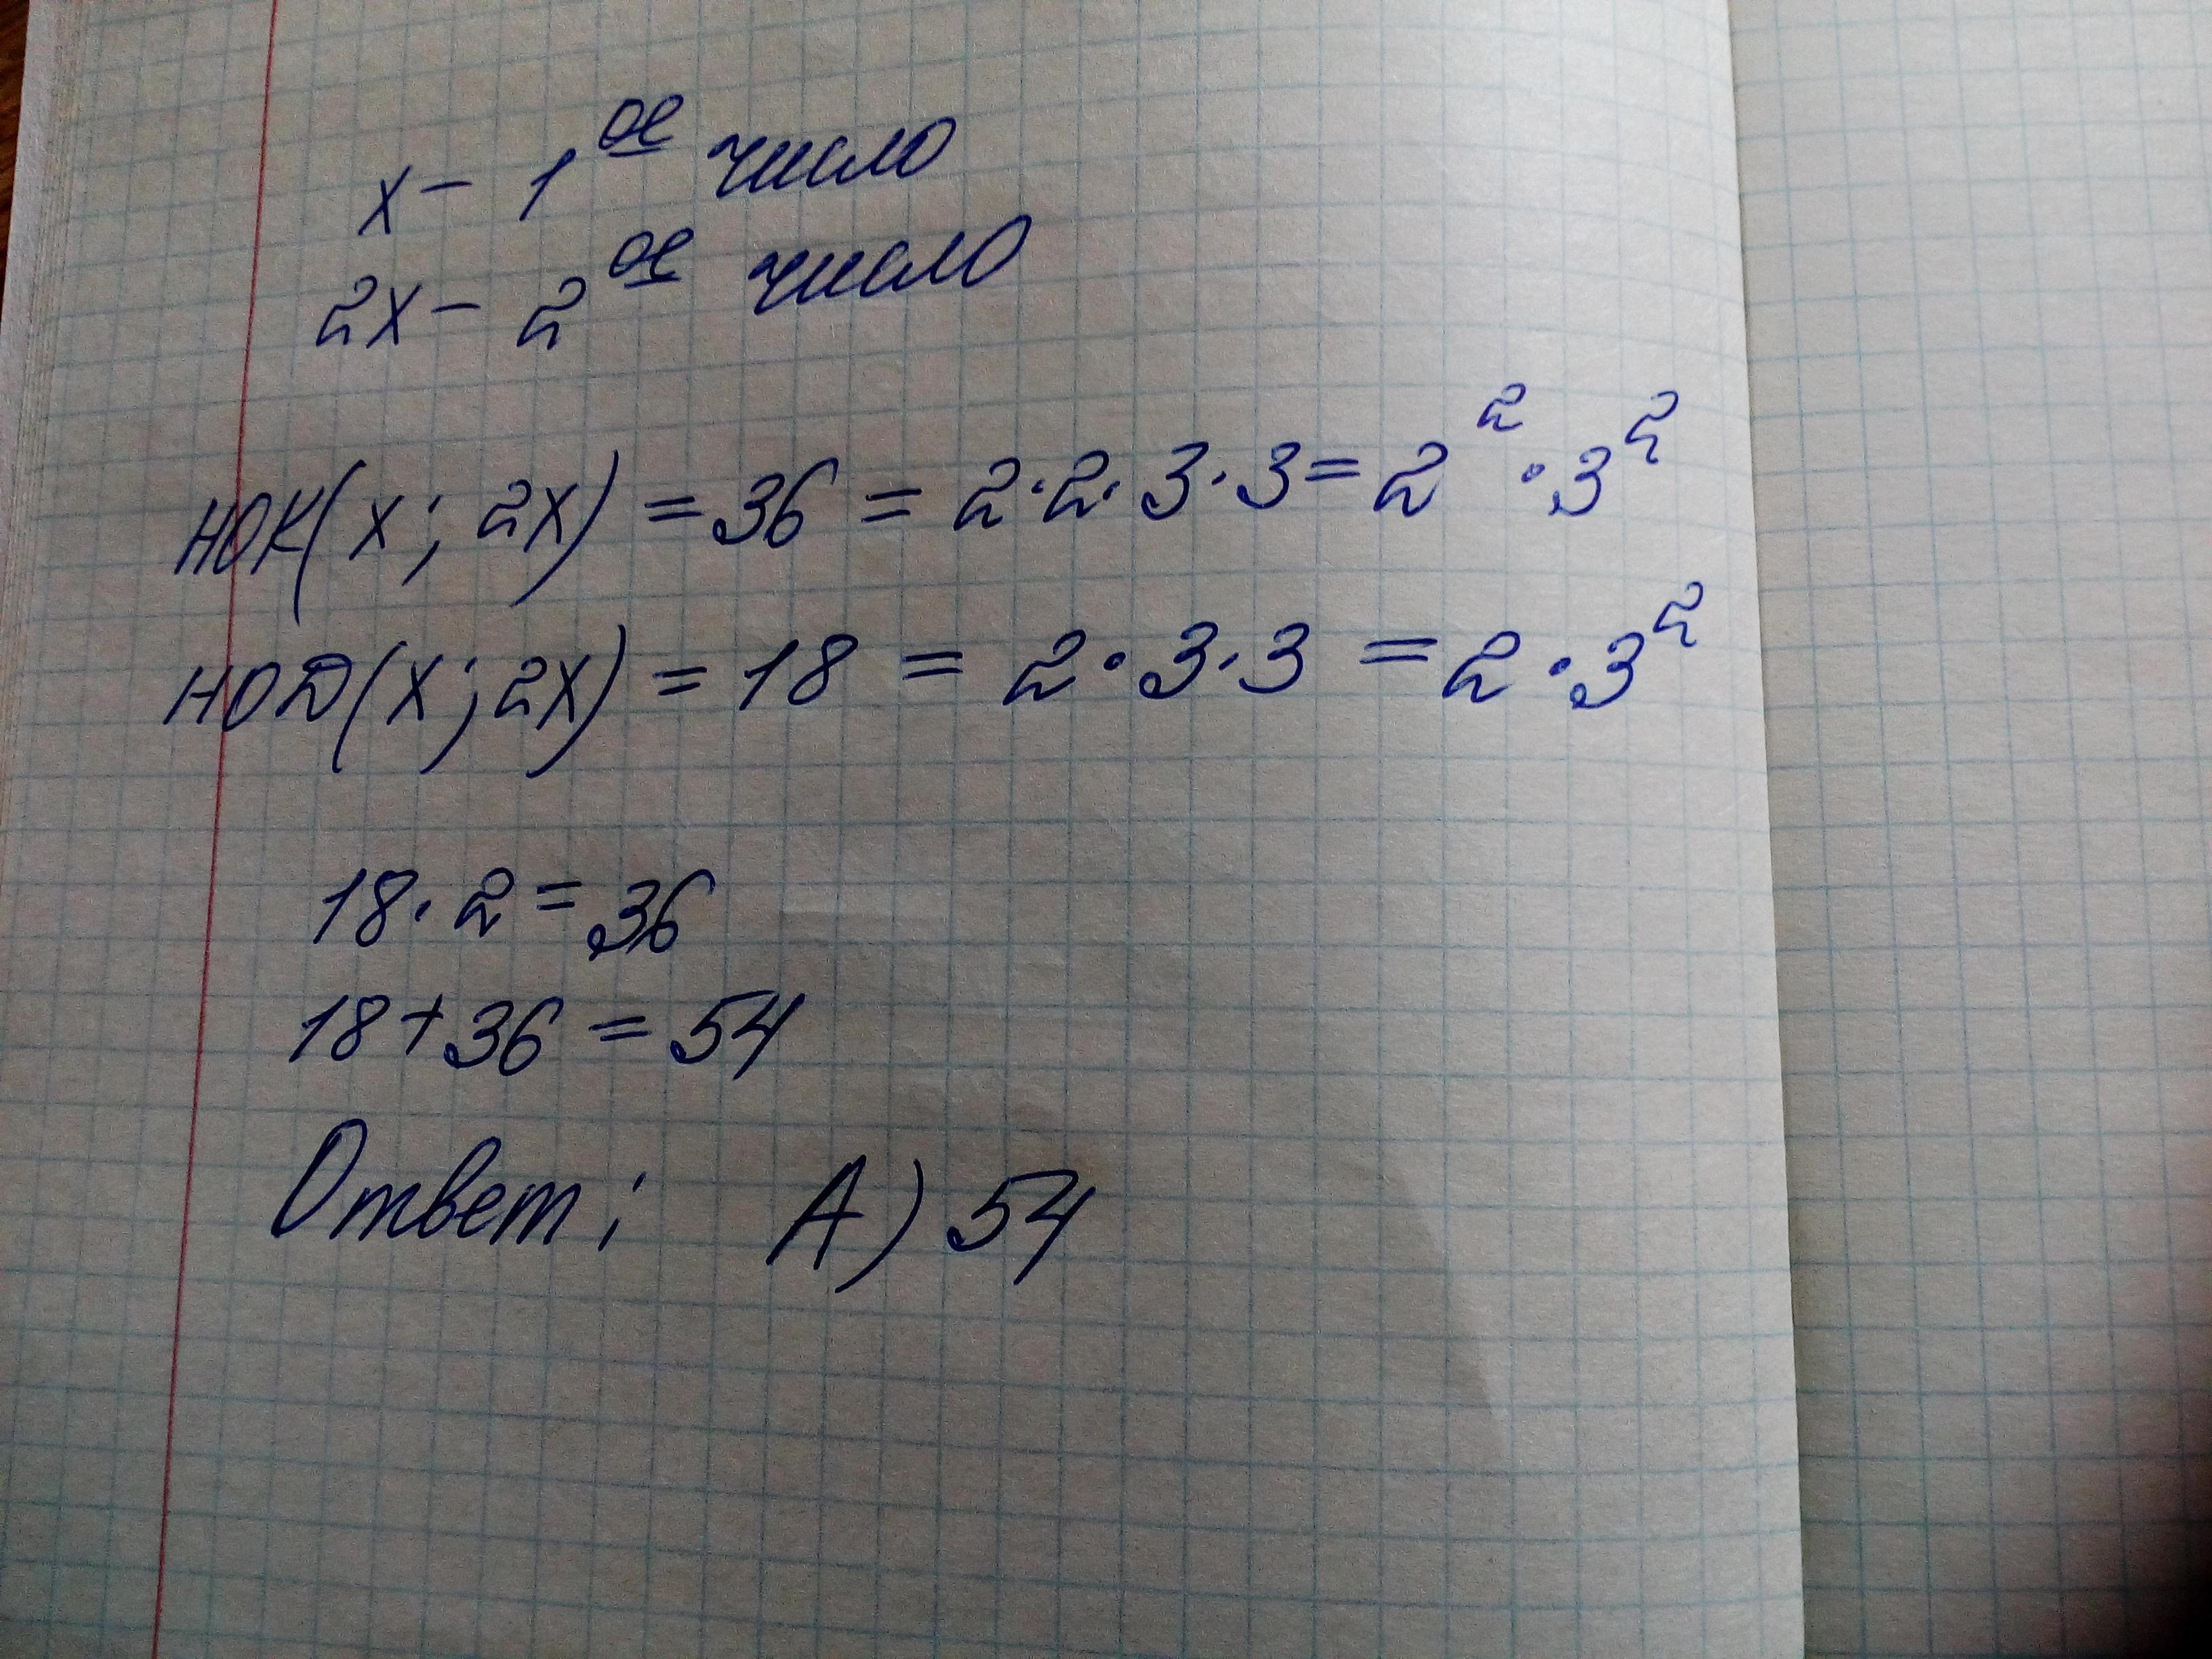 x - 1ое число
2x - 2ое число
НОК(x; 2x) = 36 = 2·2·3·3 = 2²·3²
НОД(x; 2x) = 18 = 2·3·3 = 2·3²
18·2=36
18+36=54
Ответ: А) 54